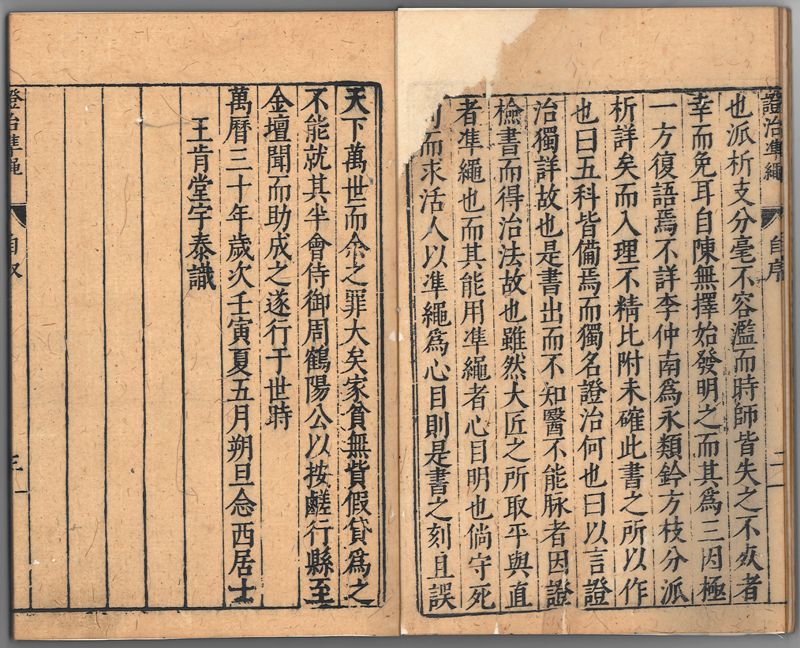 證治準繩
自序
二
也派析支分毫不容濫而時師皆失之不死者
幸而免耳自陳無擇始發明之而其爲三因極
一方復語焉不詳李仲南爲永類鈐方枝分派
析詳矣而入理不精比附未確此書之所以作
也曰五科皆備焉而獨名證治何也曰以言證
治獨詳故也是書出而不知醫不能脉者因證
檢書而得治法故也雖然大匠之所取平與直
者準繩也而其能用準繩者心目明也倘守死
而求活人以準繩爲心目則是書之刻且誤
天下萬世而余之罪大矣家貧無貲假貸爲之
不能就其半會侍御周鶴陽公以按鹺行縣至
金壇聞而助成之遂行于世時
萬曆三十年歲次壬寅夏五月朔旦念西居士
王肯堂宇泰識
證治準繩
自叙
三